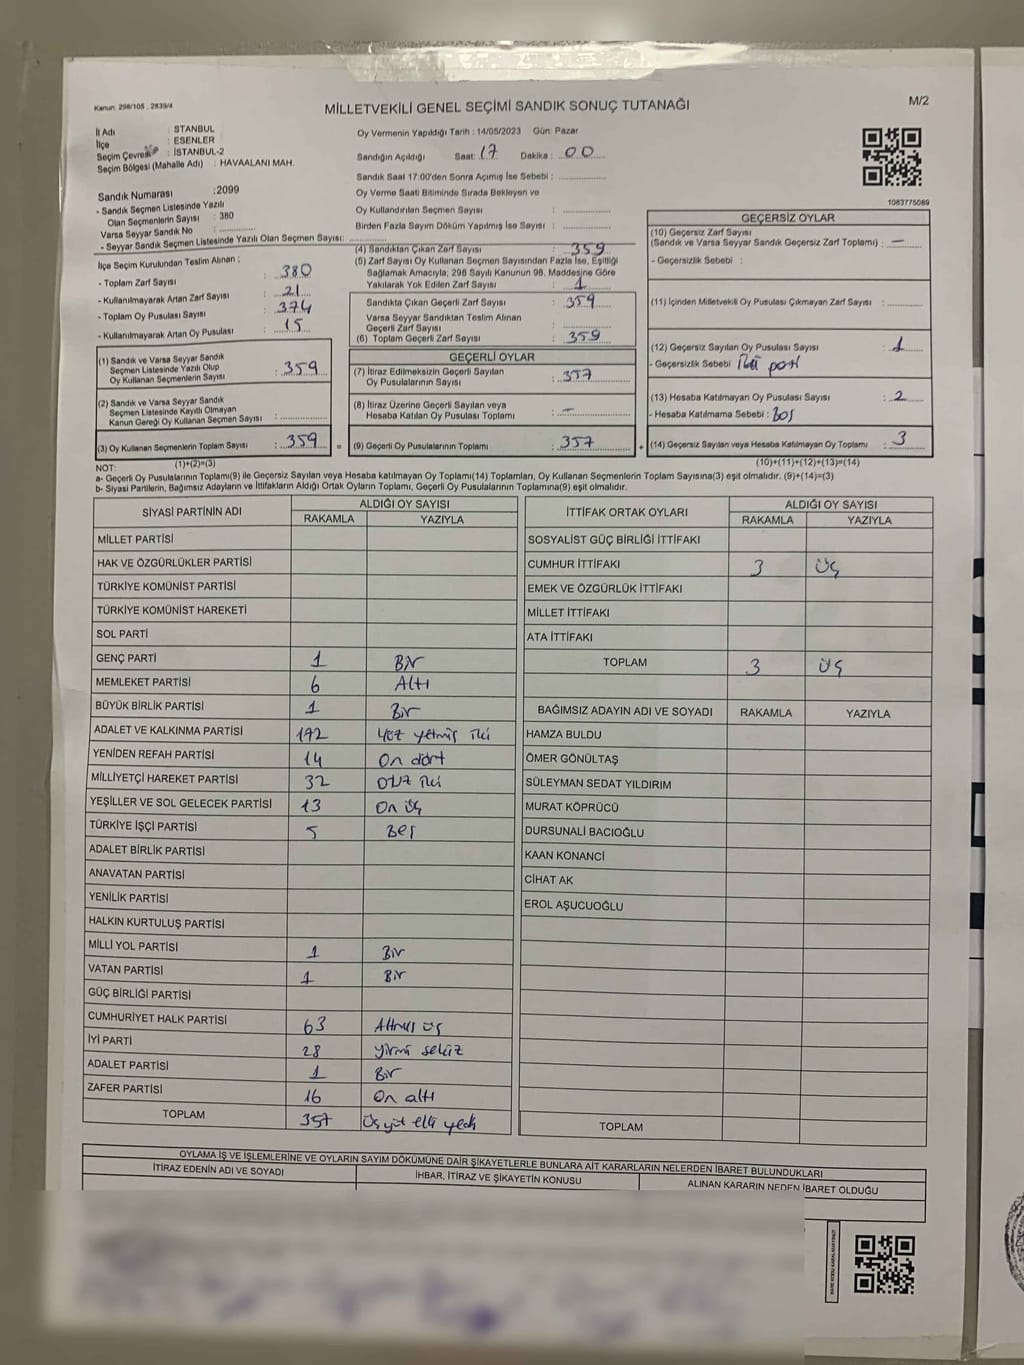 Kanun: 298/105 , 2839/4
MİLLETVEKİLİ GENEL SEÇİMİ SANDIK SONUÇ TUTANAĞI
M/2
İl Adı : STANBUL
İlçe : ESENLER
Seçim Çevresi : İSTANBUL-2
Seçim Bölgesi (Mahalle Adı) : HAVAALANI MAH.
Oy Vermenin Yapıldığı Tarih : 14/05/2023 Gün: Pazar
Sandığın Açıldığı Saat: 17 Dakika : 00
Sandık Saat 17:00'den Sonra Açımış İse Sebebi :
Oy Verme Saati Bitiminde Sırada Bekleyen ve
Oy Kullandırılan Seçmen Sayısı :
Birden Fazla Sayım Döküm Yapılmış İse Sayısı :
1083775069
Sandık Numarası :2099
- Sandık Seçmen Listesinde Yazılı
Olan Seçmenlerin Sayısı : 380
Varsa Seyyar Sandık No :
- Seyyar Sandık Seçmen Listesinde Yazılı Olan Seçmen Sayısı:
İlçe Seçim Kurulundan Teslim Alınan ;
- Toplam Zarf Sayısı : 380
- Kullanılmayarak Artan Zarf Sayısı : 21
- Toplam Oy Pusulası Sayısı : 374
- Kullanılmayarak Artan Oy Pusulası : 15
(1) Sandık ve Varsa Seyyar Sandık
Seçmen Listesinde Yazılı Olup
Oy Kullanan Seçmenlerin Sayısı : 359
(2) Sandık ve Varsa Seyyar Sandık
Seçmen Listesinde Kayıtlı Olmayan
Kanun Gereği Oy Kullanan Seçmen Sayısı :
(3) Oy Kullanan Seçmenlerin Toplam Sayısı : 359 =
(1)+(2)=(3)
(4) Sandıktan Çıkan Zarf Sayısı : 359
(5) Zarf Sayısı Oy Kullanan Seçmen Sayısından Fazla İse, Eşitliği
Sağlamak Amacıyla, 298 Sayılı Kanunun 98. Maddesine Göre
Yakılarak Yok Edilen Zarf Sayısı : 1
Sandıkta Çıkan Geçerli Zarf Sayısı : 359
Varsa Seyyar Sandıktan Teslim Alınan
Geçerli Zarf Sayısı :
(6) Toplam Geçerli Zarf Sayısı : 359
GEÇERLİ OYLAR
(7) İtiraz Edilmeksizin Geçerli Sayılan
Oy Pusulalarının Sayısı : 357
(8) İtiraz Üzerine Geçerli Sayılan veya
Hesaba Katılan Oy Pusulası Toplamı : -
(9) Geçerli Oy Pusulalarının Toplamı : 357 +
GEÇERSİZ OYLAR
(10) Geçersiz Zarf Sayısı
(Sandık ve Varsa Seyyar Sandık Geçersiz Zarf Toplamı) : -
- Geçersizlik Sebebi :
(11) İçinden Milletvekili Oy Pusulası Çıkmayan Zarf Sayısı :
(12) Geçersiz Sayılan Oy Pusulası Sayısı : 1
- Geçersizlik Sebebi İki parti
(13) Hesaba Katılmayan Oy Pusulası Sayısı : 2
- Hesaba Katılmama Sebebi : Boş
(14) Geçersiz Sayılan veya Hesaba Katılmayan Oy Toplamı : 3
(10)+(11)+(12)+(13)=(14)
NOT:
a- Geçerli Oy Pusulalarının Toplamı(9) ile Geçersiz Sayılan veya Hesaba katılmayan Oy Toplamı(14) Toplamları, Oy Kullanan Seçmenlerin Toplam Sayısına(3) eşit olmalıdır. (9)+(14)=(3)
b- Siyasi Partilerin, Bağımsız Adayların ve İttifakların Aldığı Ortak Oyların Toplamı, Geçerli Oy Pusulalarının Toplamına(9) eşit olmalıdır.
SİYASİ PARTİNİN ADI ALDIĞI OY SAYISI
RAKAMLA YAZIYLA
MİLLET PARTİSİ
HAK VE ÖZGÜRLÜKLER PARTİSİ
TÜRKİYE KOMÜNİST PARTİSİ
TÜRKİYE KOMÜNİST HAREKETİ
SOL PARTİ
GENÇ PARTİ 1 Bir
MEMLEKET PARTİSİ 6 Altı
BÜYÜK BİRLİK PARTİSİ 1 Bir
ADALET VE KALKINMA PARTİSİ 172 yüz yetmiş iki
YENİDEN REFAH PARTİSİ 14 On dört
MİLLİYETÇİ HAREKET PARTİSİ 32 otuz iki
YEŞİLLER VE SOL GELECEK PARTİSİ 13 On üç
TÜRKİYE İŞÇİ PARTİSİ 5 Beş
ADALET BİRLİK PARTİSİ
ANAVATAN PARTİSİ
YENİLİK PARTİSİ
HALKIN KURTULUŞ PARTİSİ
MİLLİ YOL PARTİSİ 1 Bir
VATAN PARTİSİ 1 Bir
GÜÇ BİRLİĞİ PARTİSİ
CUMHURİYET HALK PARTİSİ 63 Altmış üç
İYİ PARTİ 28 yirmi sekiz
ADALET PARTİSİ 1 Bir
ZAFER PARTİSİ 16 On altı
TOPLAM 357 Üç yüz elli yedi
İTTİFAK ORTAK OYLARI ALDIĞI OY SAYISI
RAKAMLA YAZIYLA
SOSYALİST GÜÇ BİRLİĞİ İTTİFAKI
CUMHUR İTTİFAKI 3 üç
EMEK VE ÖZGÜRLÜK İTTİFAKI
MİLLET İTTİFAKI
ATA İTTİFAKI
TOPLAM 3 üç
BAĞIMSIZ ADAYIN ADI VE SOYADI RAKAMLA YAZIYLA
HAMZA BULDU
ÖMER GÖNÜLTAŞ
SÜLEYMAN SEDAT YILDIRIM
MURAT KÖPRÜCÜ
DURSUNALİ BACIOĞLU
KAAN KONANCİ
CİHAT AK
EROL AŞUCUOĞLU
TOPLAM
OYLAMA İŞ VE İŞLEMLERİNE VE OYLARIN SAYIM DÖKÜMÜNE DAİR ŞİKAYETLERLE BUNLARA AİT KARARLARIN NELERDEN İBARET BULUNDUKLARI
İTİRAZ EDENİN ADI VE SOYADI İHBAR, İTİRAZ VE ŞİKAYETİN KONUSU ALINAN KARARIN NEDEN İBARET OLDUĞU